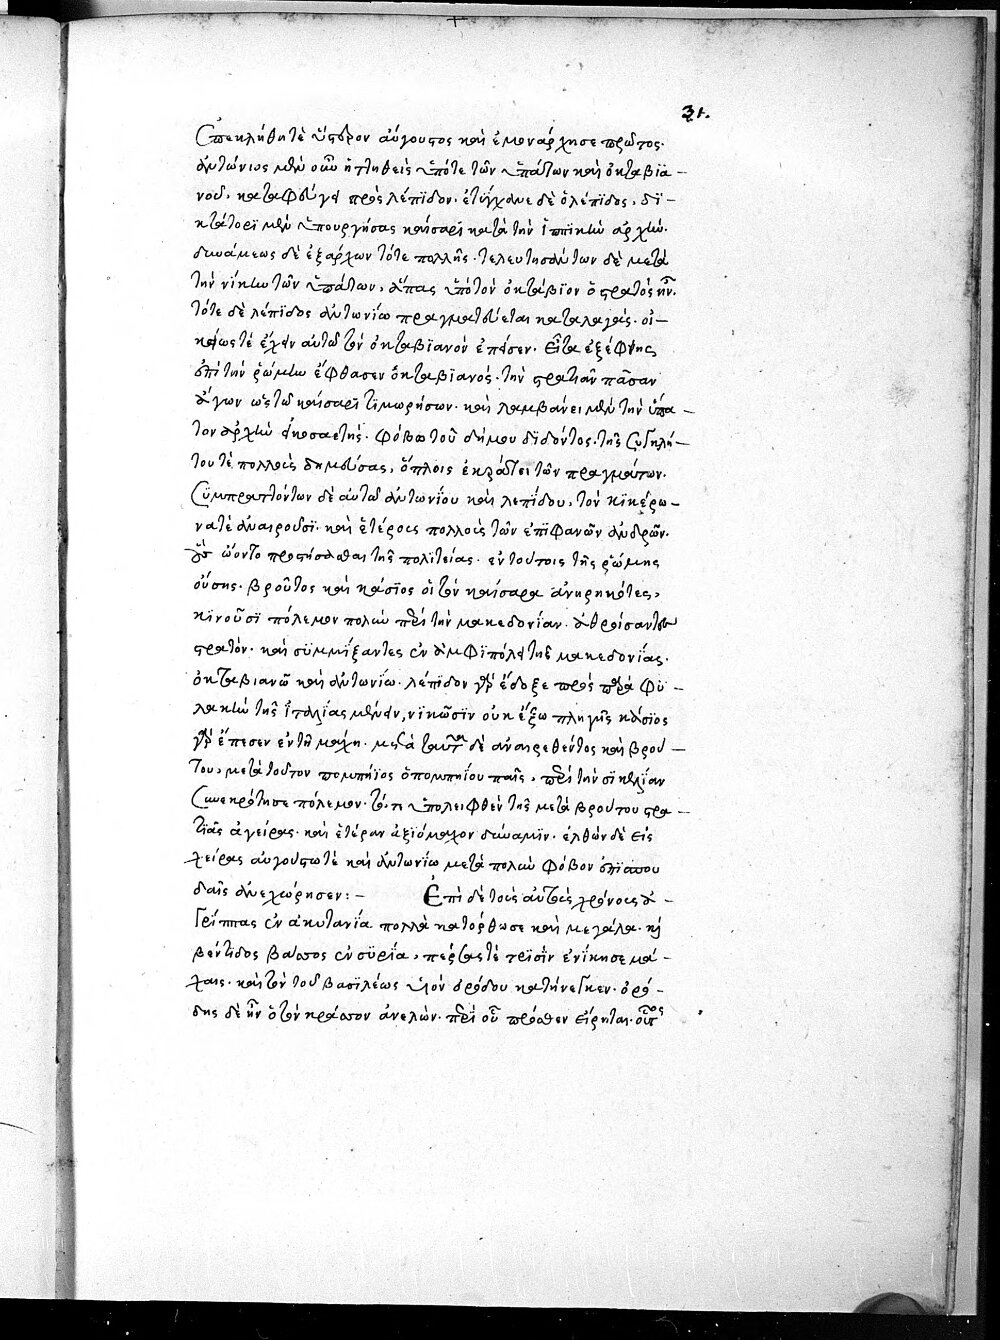 31.
ἐπεκλήθη τὲ ὕστερον αὔγουστος καὶ ἐμονάρχησε πρῶτος.
ἀντώνιος μὲν οὖν ἡττηθεὶς ὑπό τε τῶν ὑπάτων καὶ ὀκταβϊα –
νοῦ, καταφεύγει πρὸς λέπϊδον. ἐτύγχανε δὲ ὁ λέπϊδος, δι –
κτάτορϊ μὲν ὑπουργήσας καίσαρϊ κατὰ τὴν ἱππϊκὴν ἀρχὴν.
δυνάμεως δὲ ἐξάρχων τότε πολλῆς. τελευτησάντων δὲ μετὰ
τὴν νίκην τῶν ὑπάτων, ἅπας ὑπὸ τὸν ὀκτάβϊον ὁ στρατὸς ἦν.
τότε δὲ λέπιδος ἀντωνίω πραγματεύεται καταλαγάς. οἰ –
κείως τὲ ἔχειν αὐτῶ τὸν ὀκταβϊανὸν ἔπεισεν. εἶτα ἐξέφνης
ἐπὶ τὴν ῥώμην ἔφθασεν ὀκταβϊανός. τὴν στρατιὰν πᾶσαν
ἄγων ὡς τῶ καίσαρϊ τιμωρήσων. καὶ λαμβάνει μὲν τὴν ὕπα –
τον ἀρχὴν εἰκοσαετὴς. φόβω τοῦ δήμου δϊδόντος. τῆς συγκλή –
του τὲ πολλοὺς δημεύσας, ὅπλοις ἐκράτει τῶν πραγμάτων.
Συμπραττόντων δὲ αὐτῶ ἀντωνίου καὶ λεπίδου, τὸν κϊκέρω –
να τὲ ἀναιροῦσϊ. καὶ ἑτέρους πολλοὺς τῶν ἐπϊφανῶν ἀνδρῶν.
οὓς ὤοντο προστήσασθαι τῆς πολϊτείας. ἐν τούτοις τῆς ῥώμης
οὔσης. βροῦτος καὶ κάσϊος οἱ τὸν καίσαρα ἀνηρηκότες,
κϊνοῦσϊ πόλεμον πολὺν περὶ τὴν μακεδονίαν. ἀθροίσαντες
στρατὸν. καὶ συμμίξαντες ἐν ἀμφϊπόλει τῆς μακεδονίας.
ὀκταβιανῶ καὶ ἀντωνίω. λέπϊδον γὰρ ἔδοξε πρὸς παρὰ φυ –
λακὴν τῆς ἰταλίας μένειν, νϊκῶσϊν οὐκ ἔξω πληγῆς κάσϊος
γὰρ ἔπεσεν ἐν τῆ μάχη. μετὰ ταῦτα δὲ ἀναιρεθέντος καὶ βρού –
του, μετὰ τοῦτον πομπήϊος ὁ πομπηΐου παῖς, περὶ τὴν σϊκελίαν
Συνεκρότησε πόλεμον. τό,τι ὑπολειφθὲν τῆς μετὰ βρούτου στρα –
τϊᾶς ἀγείρας. καὶ ἑτέραν ἀξϊόμαχον δύναμϊν. ἐλθὼν δὲ εἰς
χεῖρας αὐγούστω τὲ καὶ ἀντωνίω μετὰ πολὺν φόβον ἐπϊ σπου
δαῖς ἀνεχώρησεν: – Ἐπὶ δὲ τοὺς αὐτοὺς χρόνους ἀ –
γρίππας ἐν ἀκυτανία πολλὰ κατόρθωσε καὶ μεγάλα. καὶ
βέντϊδος βάσσος ἐν συρία, πέρσας τὲ τρϊσὶν ἐνίκησε μά –
χαις. καὶ τὸν τοῦ βασϊλέως υἱὸν ὀρόδου κατήνεγκεν. ὀρό –
δης δὲ ἦν ὁ τὸν κράσσον ἀνελὼν. περὶ οὗ πρόσθεν εἴρηται. οὗτος